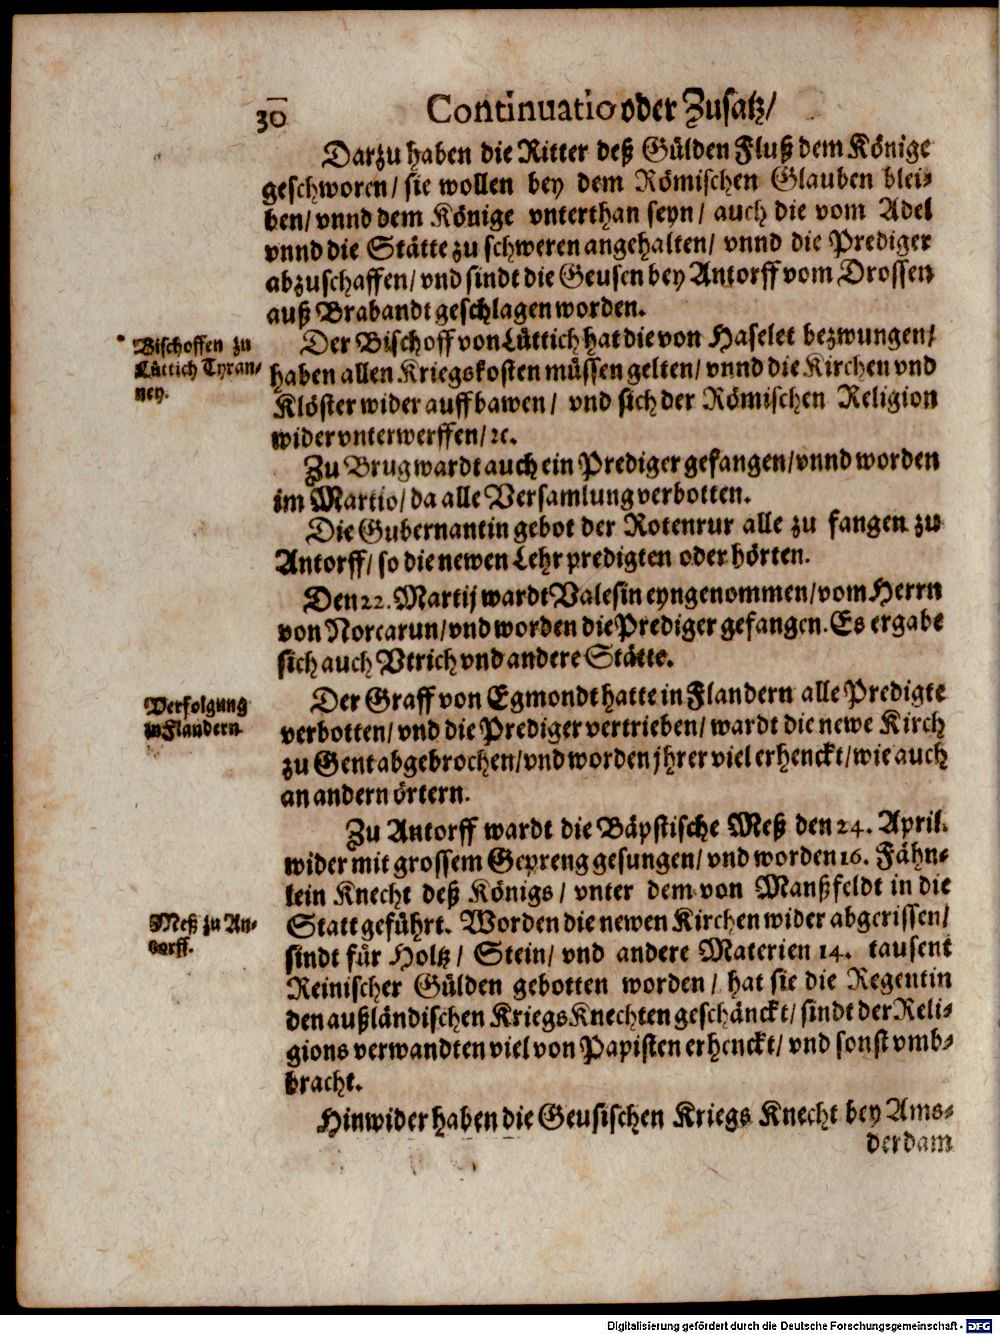 30 Continuatio oder Zusatz/
Darzu haben die Ritter deß Gülden Fluß dem Könige
geschworen/ sie wollen bey dem Römischen Glauben blei-
ben/ vnnd dem Könige vnterthan seyn/ auch die vom Adel
vnnd die Stätte zu schweren angehalten/ vnnd die Prediger
abzuschaffen/ vnd sindt die Geusen bey Antorff vom Drossen
auß Brabandt geschlagen worden.
Bischoffen zu
Lüttich Tyran-
ney.
Der Bischoff von Lüttich hat die von Haselet bezwungen/
haben allen Kriegskosten müssen gelten/ vnnd die Kirchen vnd
Klöster wider auffbawen/ vnd sich der Römischen Religion
wider vnterwerffen/ ꝛc.
Zu Brug wardt auch ein Prediger gefangen/ vnnd worden
im Martio/ da alle Versamlung verbotten.
Die Gubernantin gebot der Rotenrur alle zu fangen zu
Antorff/ so die newen Lehr predigten oder hörten.
Den 22. Martij wardt Valesin eyngenommen/ vom Herrn
von Norcarun/ vnd worden die Prediger gefangen. Es ergabe
sich auch Vtrich vnd andere Stätte.
Verfolgung
in Flandern
Der Graff von Egmondt hatte in Flandern alle Predigte
verbotten/ vnd die Prediger vertrieben/ wardt die newe Kirch
zu Gent abgebrochen/ vnd worden jhrer viel erhenckt/ wie auch
an andern örtern.
Zu Antorff wardt die Bäpstische Meß den 24. April.
wider mit grossem Gepreng gesungen/ vnd worden 16. Fähn-
lein Knecht deß Königs/ vnter dem von Manßfeldt in die
Meß zu An-
torff.
Statt geführt. Worden die newen Kirchen wider abgerissen/
sindt für Holtz/ Stein/ vnd andere Materien 14. tausent
Reinischer Gülden gebotten worden/ hat sie die Regentin
den außländischen KriegsKnechten geschänckt/ sindt der Reli-
gions verwandten viel von Papisten erhenckt/ vnd sonst vmb-
bracht.
Hinwider haben die Geusischen Kriegs Knecht bey Ams-
derdam
Digitalisierung gefördert durch die Deutsche Forschungsgemeinschaft - DFG